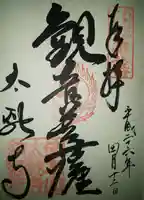 奉拝
平成二十六年
四月十二日
観音菩薩